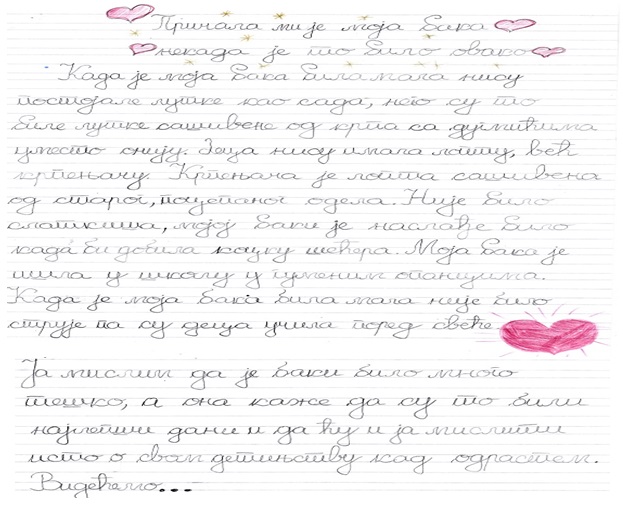 Причала ми је моја бака
некада је то било овако
Када је моја бака била мала нису
постојале лутке као сада, него су то
биле лутке сашивене од крпа са дугмићима
уместо очију. Деца нису имала лопту, већ
крпењачу. Крпењача је лопта сашивена
од старог, поцепаног одела. Није било
слаткиша, мојој баки је најслађе било
када би добила коцку шећера. Моја бака је
ишла у школу у гуменим опанцима.
Када је моја бака била мала није било
струје па су деца учила поред свеће
Ја мислим да је баки било много
тешко, а она каже да су то били
најлепши дани и да ћу и ја мислити
исто о свом детињству кад одрастем.
Видећемо...